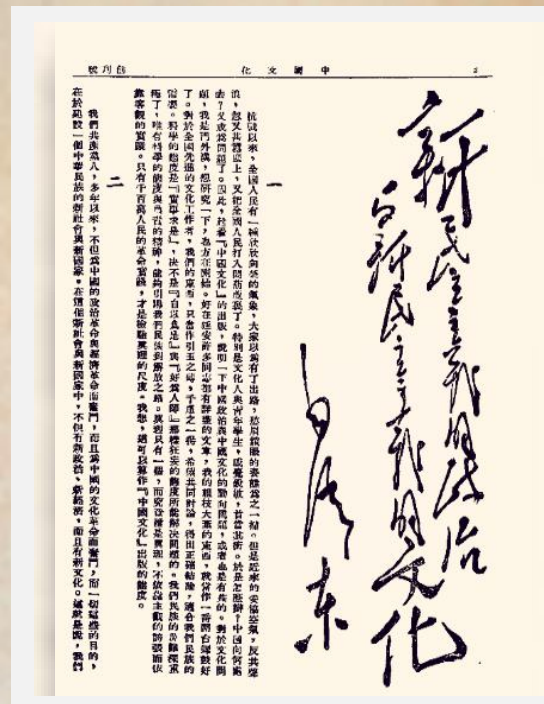 2
中國文化
創刊號
新民主主義的政治
與新民主主義的文化
毛澤東
一
抗戰以來，全國人民有一種欣欣向榮的氣象，大家以爲有了出路，愁眉鎖眼的姿態爲之一掃。但是近來的妥協空氣，反共聲
浪，忽又甚囂塵上，又把全國人民打入悶葫蘆裏了。特別是文化人與青年學生，感覺銳敏，首當其衝。於是怎麼辦？中國向何處
去？又成爲問題了。因此，趁着『中國文化』的出版，說明一下中國政治與中國文化的動向問題，或者也是有益的。對於文化問
題，我是門外漢，想研究一下，也方在開始。好在延安許多同志都有詳盡的文章，我的粗枝大葉的東西，就當作一番開台鑼鼓好
了。對於全國先進的文化工作者，我們的東西，只當作引玉之磚，千慮之一得，希望共同討論，得出正確結論，適合我們民族的
需要。科學的態度是『實事求是』，決不是『自以爲是』與『好爲人師』那樣狂妄的態度所能解決問題的。我們民族的災難深重
極了，唯有科學的態度與負責的精神，能夠引導我們民族到解放之路。真理只有一個，而究竟誰是真理，不依靠主觀的誇張而依
靠客觀的實踐。只有千百萬人民的革命實踐，才是檢驗真理的尺度。我想，這可以算作『中國文化』出版的態度。
二
我們共產黨人，多年以來，不但爲中國的政治革命與經濟革命而奮鬥，而且爲中國的文化革命而奮鬥，而一切這些的目的，
在於建設一個中華民族的新社會與新國家。在這個新社會與新國家中，不但有新政治、新經濟，而且有新文化。這就是說，我們